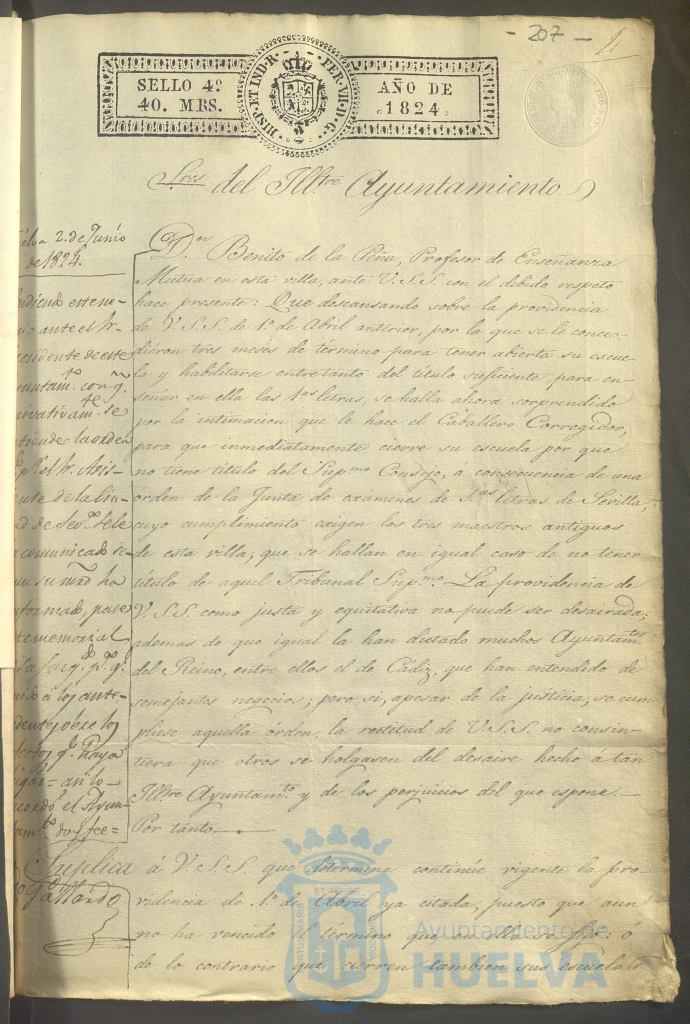 - 207 -
SELLO 4º
40. MRS.
HISP. ET IND. R. FER. VII. D. G.
AÑO DE
1824.
Sres del Ill.tre Ayuntamiento
2. de Junio
de 1824.
D.n Benito de la Peña, Profesor de Enseñanza
Mutua en esta villa, ante V.S.S. con el debido respeto
hace presente: Que descansando sobre la providencia
de V.S.S. de 1.º de Abril anterior, por la que se le conce-
dieron tres meses de término para tener abierta su escue-
la y habilitarse entretanto del título suficiente para en-
señar en ella las 1.as letras, se halla ahora sorprendido
por la intimacion que le hace el Caballero Corregidor,
para que inmediatamente cierre su escuela por que
no tiene título del Sup.mo Consejo, á consecuencia de una
órden de la Junta de exámenes de 1.as letras de Sevilla,
cuyo cumplimiento exigen los tres maestros antiguos
de esta villa, que se hallan en igual caso de no tener
título de aquel Tribunal Sup.mo La providencia de
V.S.S. como justa y equitativa no puede ser desairada;
ademas de que igual la han dictado muchos Ayuntam.tos
del Reino, entre ellos el de Cádiz, que han entendido de
semejantes negocios; pero si, apesar de la justicia, se cum-
pliese aquella órden, la rectitud de V.S.S. no consin-
tiera que otros se holgasen del desaire hecho á tan
Ill.tre Ayuntam.to y de los perjuicios del que espone.—
Por tanto.—
Suplica á V.S.S. que determine continúe vigente la pro-
videncia de 1.º de Abril ya citada, puesto que aun
no ha vencido el término que en ella se fijó: ó
de lo contrario que cierren tambien sus escuelas
ante el
de la
comunicado
su mrd ha
pase
memorial
á los ante-
sobre los
haya
lugar= así lo
acordó el Ayun-
tam.to doy fee=
Gallardo
Ayuntamiento de
HUELVA